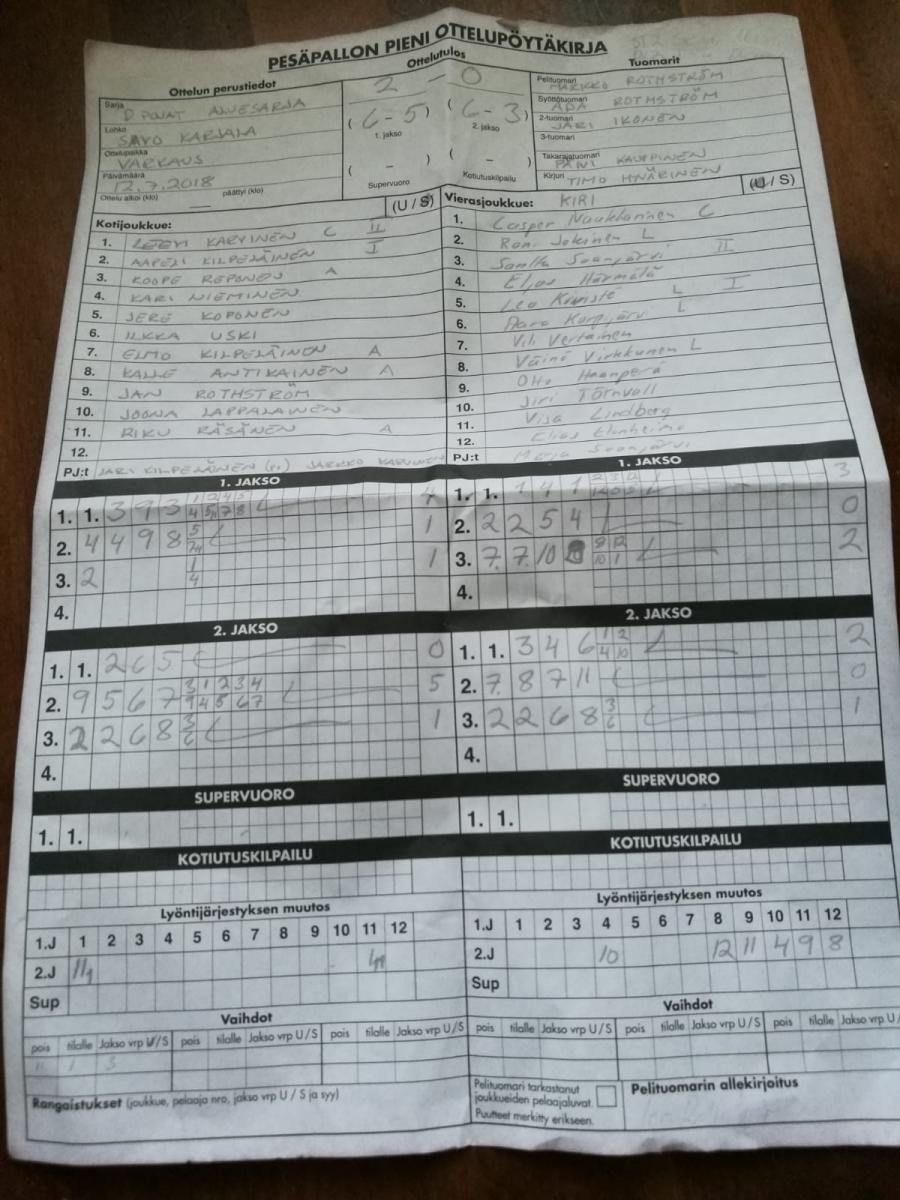 PESÄPALLON PIENI OTTELUPÖYTÄKIRJA
Ottelun perustiedot
Sarja
D POJAT ALUESARJA
Lohko
SAVO KARJALA
Ottelupaikka
VARKAUS
Päivämäärä
12.7.2018
Ottelu alkoi (klo) päättyi (klo)
Ottelutulos
2 - 0
( 6 - 5 ) ( 6 - 3 )
1. jakso 2. jakso
( - ) ( - )
Supervuoro Kotiutuskilpailu
Tuomarit
Pelituomari
MARKKO ROTHSTRÖM
Syöttötuomari
ADA ROTHSTRÖM
2-tuomari
JARI IKONEN
3-tuomari
Takarajatuomari
KAUPPINEN
Kirjuri TIMO
Kotijoukkue: (U / S)
1. LEEVI KARVINEN C II
2. AAPELI KILPELÄINEN I
3. ROOPE REPONEN A
4. KARI NIEMINEN
5. JERE KOPONEN
6. ILKKA USKI
7. ELMO KILPELÄINEN A
8. KALLE ANTIKAINEN A
9. JAN ROTHSTRÖM
10. JOONA LAPPALAINEN
11. RIKU RÄSÄNEN A
12.
PJ:t JARI KILPELÄINEN JARKKO KARVINEN
Vierasjoukkue: KIRI (U / S)
1. Casper Naukkarinen C
2. Jokinen L
3. Saarijärvi II
4. Elias Härmälä
5. Leo L I
6. L
7. Vertainen
8. Väinö Virkkunen L
9. Otto Haanperä
10. Jiri Törnvall
11. Visa Lindberg
12. Elias
PJ:t
1. JAKSO
1. 1. 3 9 3 4
2. 4 4 9 8 1
3. 2 1 4 1
4.
1. JAKSO
1. 1. 1 4 1 3
2. 2 2 5 4 0
3. 7 7 10 2
4.
2. JAKSO
1. 1. 2 6 5 0
2. 9 5 6 7 3 1 2 3 4 9 4 5 6 7 5
3. 2 2 6 8 3 6 1
4.
2. JAKSO
1. 1. 3 4 6 1 2 4 10 2
2. 7 8 7 11 0
3. 2 2 6 8 3 6 1
4.
SUPERVUORO
1. 1.
SUPERVUORO
1. 1.
KOTIUTUSKILPAILU
KOTIUTUSKILPAILU
Lyöntijärjestyksen muutos
1.J 1 2 3 4 5 6 7 8 9 10 11 12
2.J
Sup
Lyöntijärjestyksen muutos
1.J 1 2 3 4 5 6 7 8 9 10 11 12
2.J 10 12 11 4 9 8
Sup
Vaihdot
pois tilalle Jakso vrp U/S pois tilalle Jakso vrp U/S pois tilalle Jakso vrp U/S
11 1 3
Vaihdot
pois tilalle Jakso vrp U/S pois tilalle Jakso vrp U/S pois tilalle Jakso vrp U/
Rangaistukset (joukkue, pelaaja nro, jakso vrp U / S ja syy)
Pelituomari tarkastanut
joukkueiden pelaajaluvat.
Puutteet merkitty erikseen.
Pelituomarin allekirjoitus